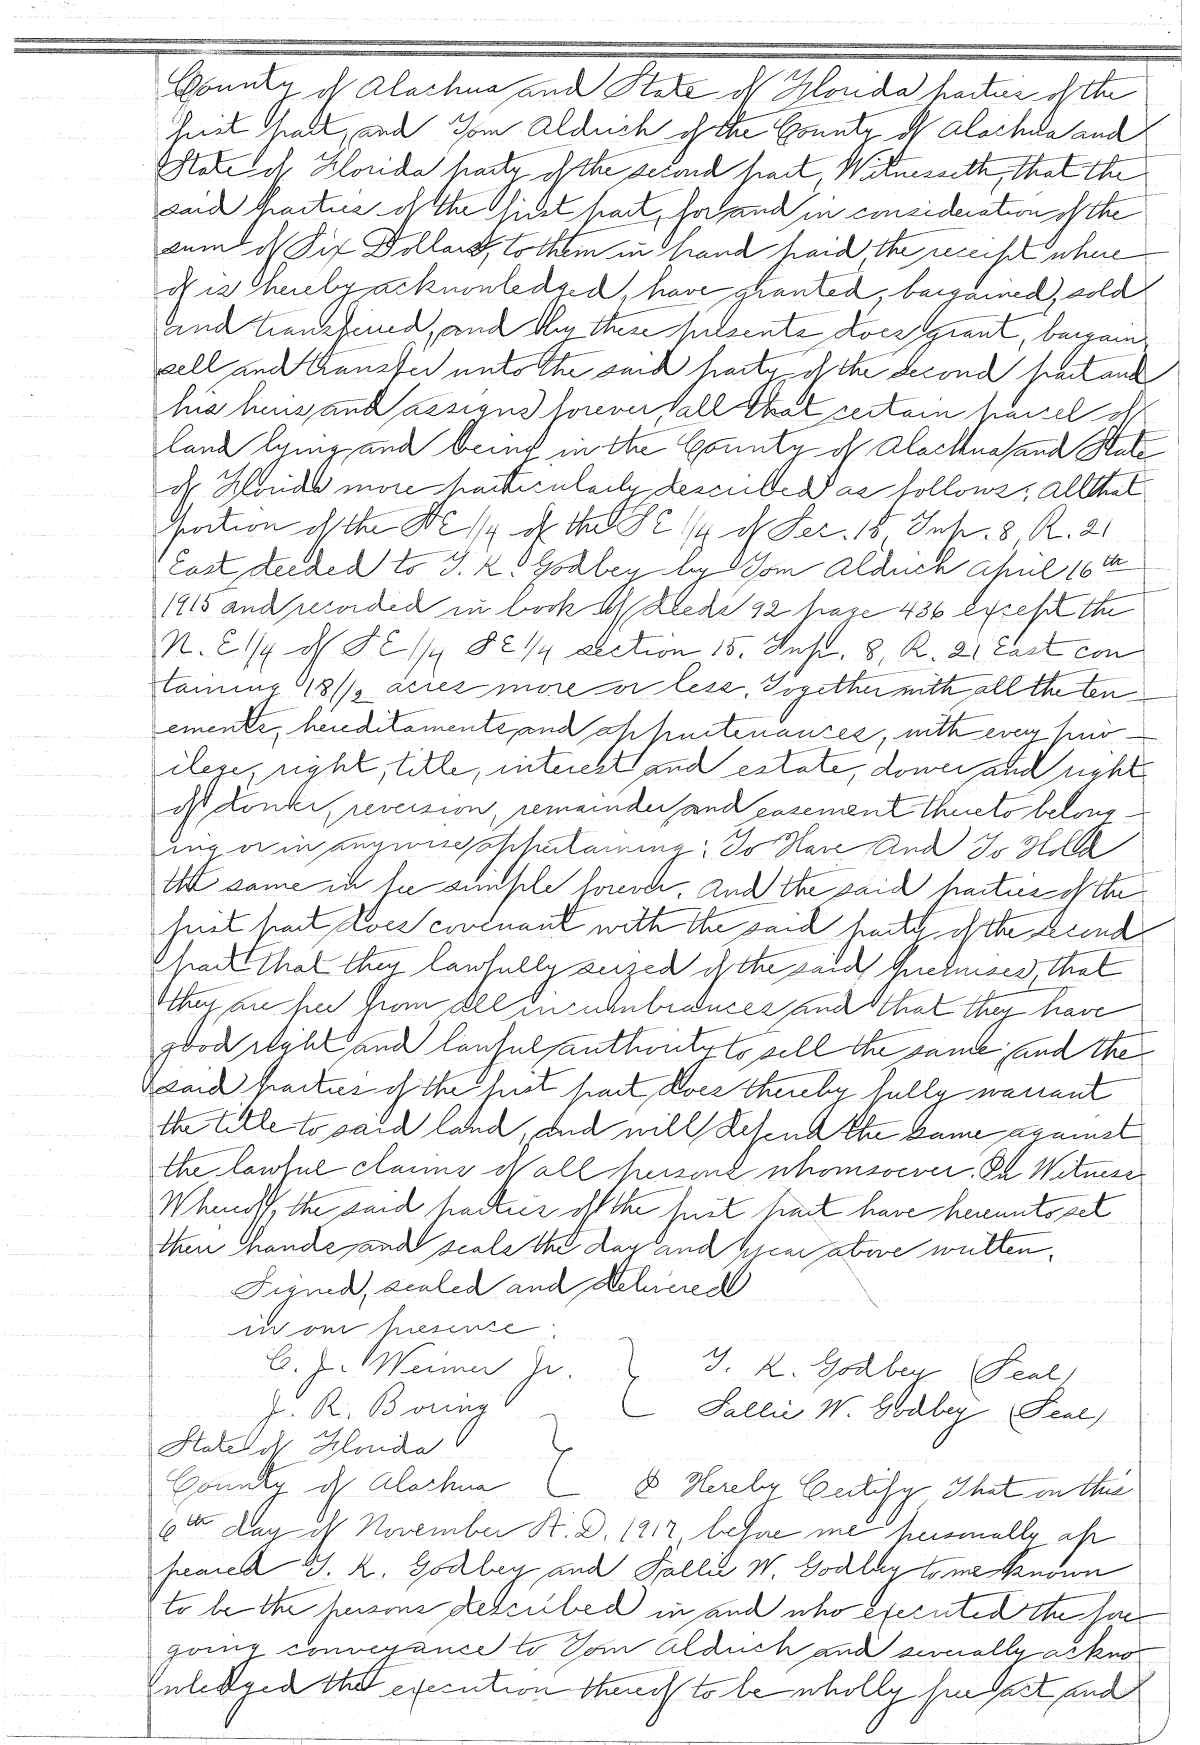 County of Alachua and State of Florida parties of the
first part, and Tom Aldrich of the County of Alachua and
State of Florida party of the second part, Witnesseth, that the
said parties of the first part, for and in consideration of the
sum of Six Dollars, to them in hand paid, the receipt where
of is hereby acknowledged, have granted, bargained, sold
and transferred, and by these presents does grant, bargain,
sell and transfer unto the said party of the second part and
his heirs and assigns forever, all that certain parcel of
land lying and being in the County of Alachua and State
of Florida more particularly described as follows: All that
portion of the SE 1/4 of the SE 1/4 of Sec. 15, Tnp. 8, R. 21
East deeded to T. K. Godbey by Tom Aldrich April 16th
1915 and recorded in book of deeds 92 page 436 except the
N. E 1/4 of SE 1/4 SE 1/4 section 15. Tnp. 8, R. 21 East con
taining 18 1/2 acres more or less. Together with all the ten
ements, hereditaments and appurtenances, with every priv-
ilege, right, title, interest and estate, dower and right
of dower, reversion, remainder and easement thereto belong-
ing or in anywise appertaining: To Have And To Hold
the same in fee simple forever. And the said parties of the
first part does covenant with the said party of the second
part that they lawfully seized of the said premises, that
they are free from all incumbrances and that they have
good right and lawful authority to sell the same; and the
said parties of the first part does thereby fully warrant
the title to said land, and will defend the same against
the lawful claims of all persons whomsoever. In Witness
Whereof, the said parties of the first part have hereunto set
their hands and seals the day and year above written.
Signed, sealed and delivered
in our presence:
C. J. Weimer Jr. } T. K. Godbey (Seal)
J. R. Boring { Sallie W. Godbey (Seal)
State of Florida
County of Alachua { I Hereby Certify, That on this
6th day of November A. D. 1917, before me personally ap
peared T. K. Godbey and Sallie W. Godbey to me known
to be the persons described in and who executed the fore
going conveyance to Tom Aldrich and severally ackno
wledged the execution thereof to be wholly free act and